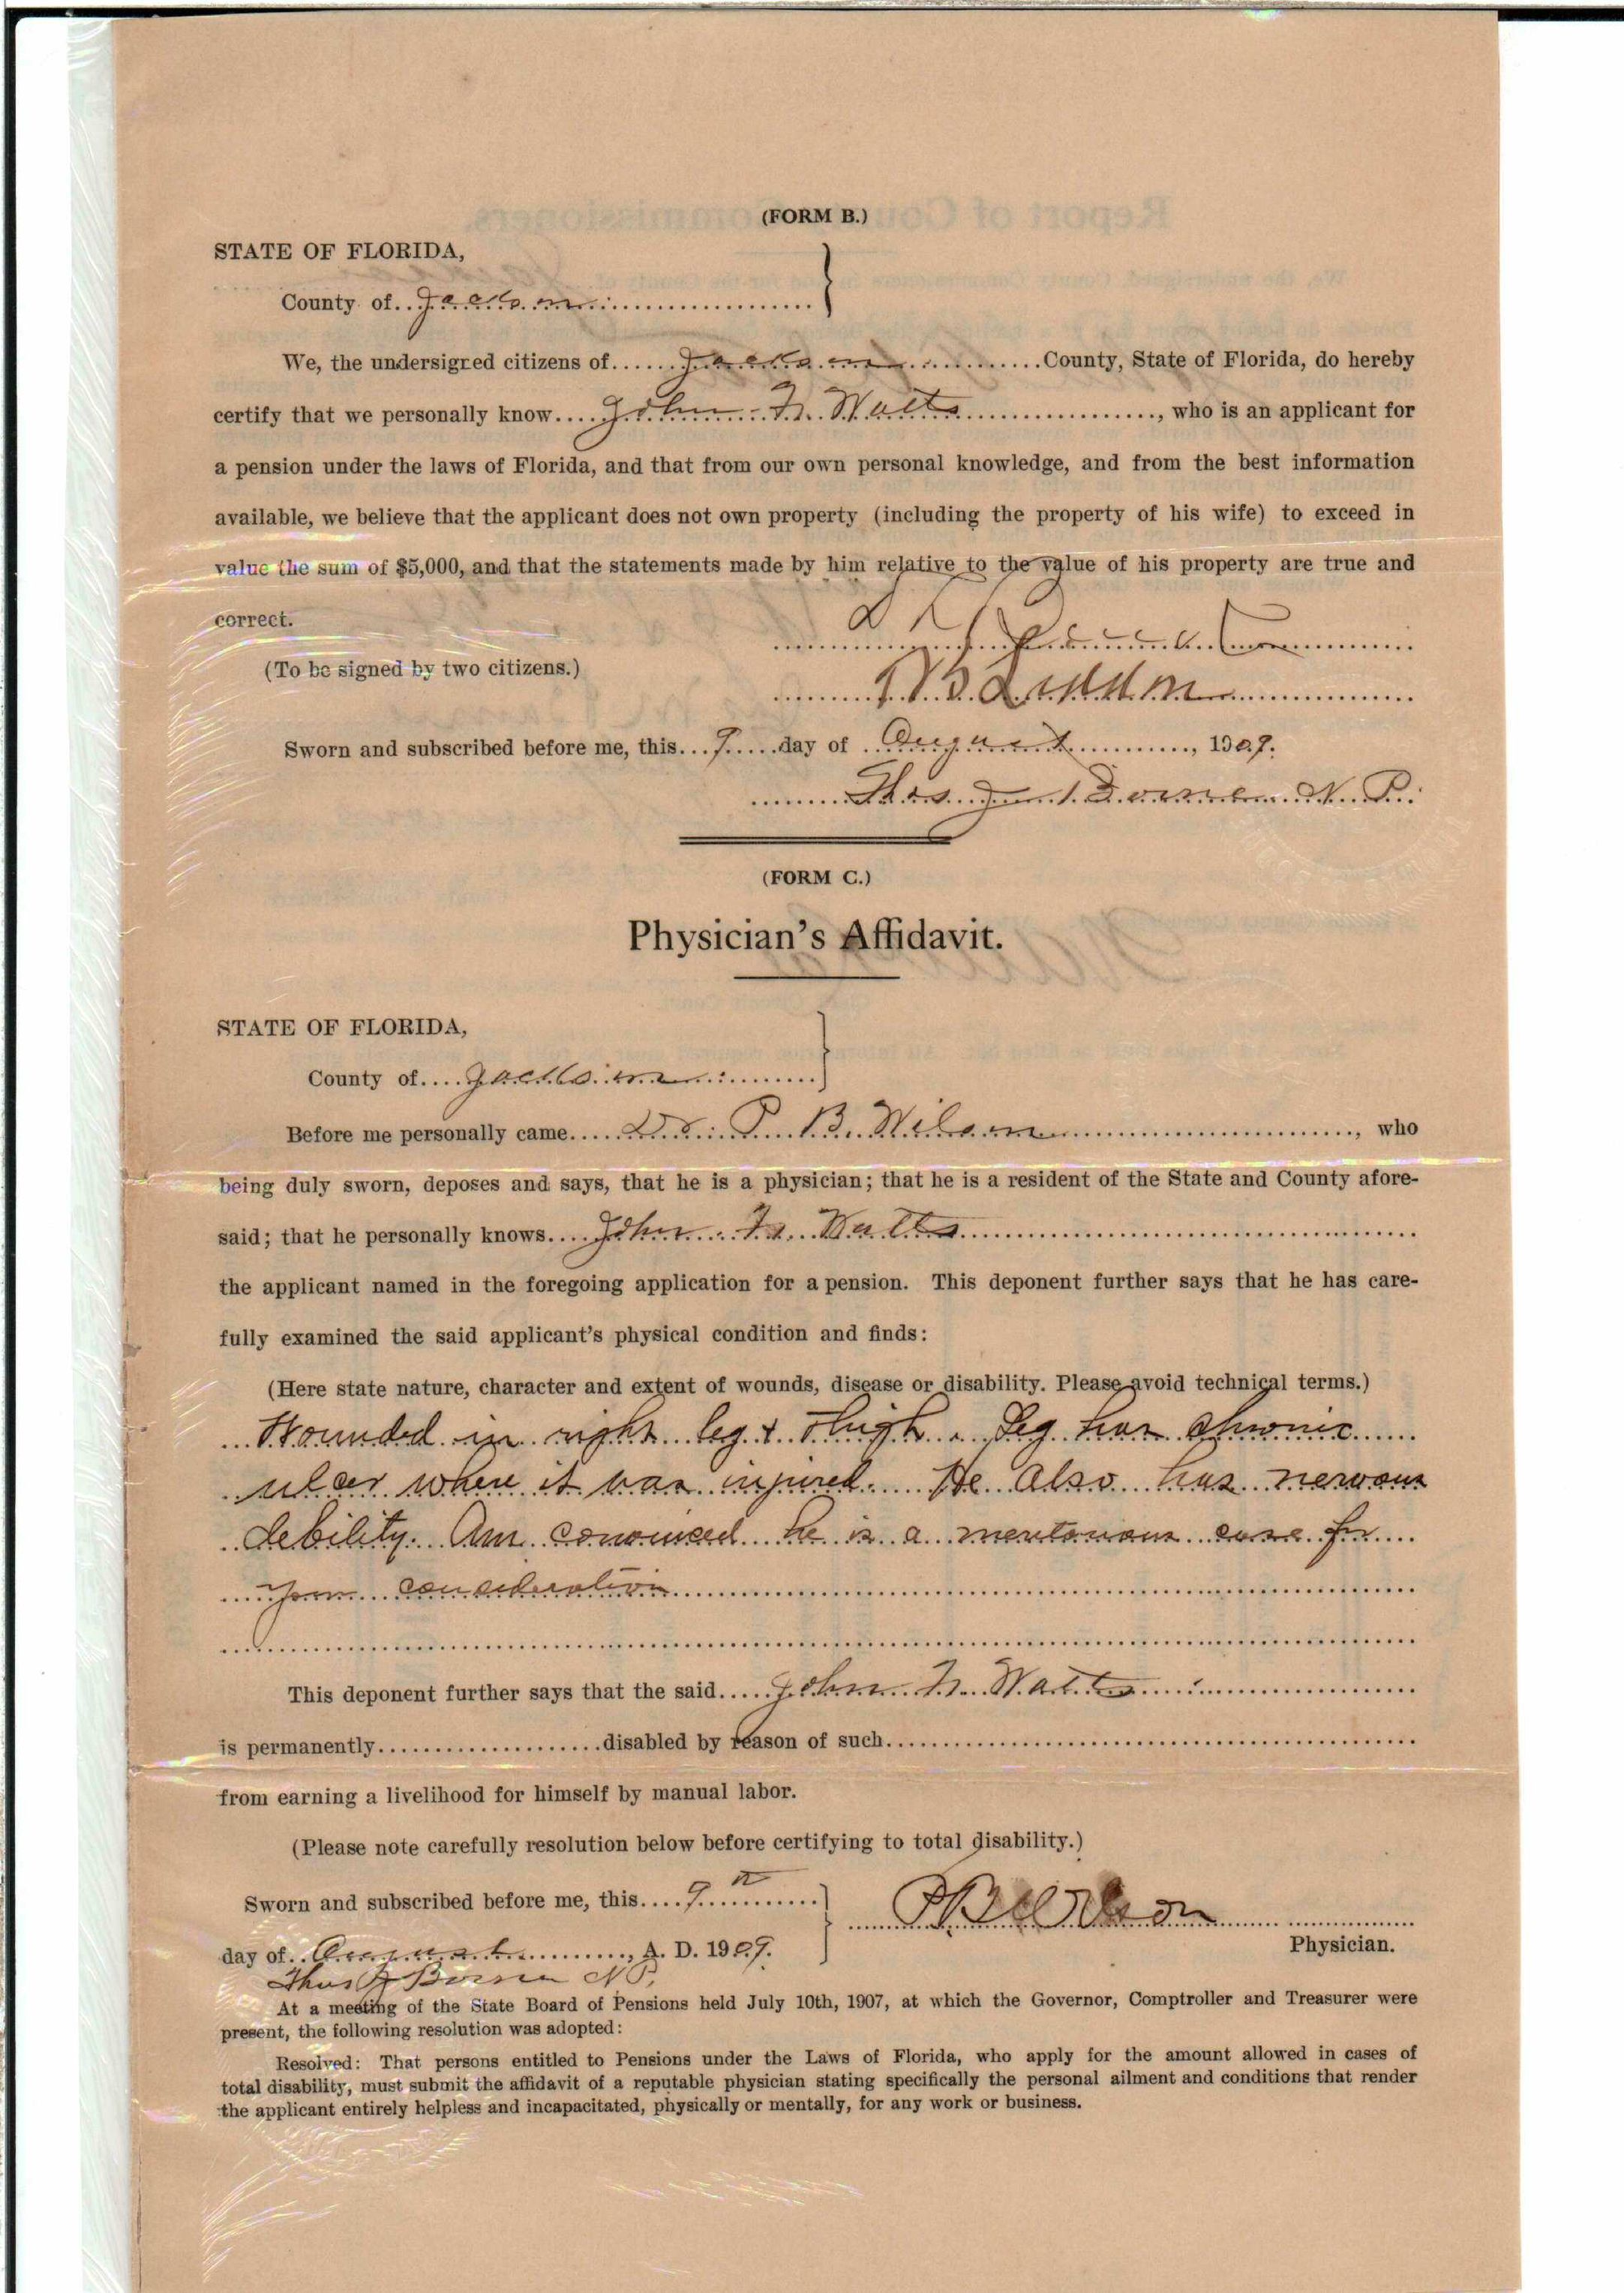 (FORM B.)
STATE OF FLORIDA,
County of Jackson
We, the undersigned citizens of Jackson County, State of Florida, do hereby
certify that we personally know John Watts, who is an applicant for
a pension under the laws of Florida, and that from our own personal knowledge, and from the best information
available, we believe that the applicant does not own property (including the property of his wife) to exceed in
value the sum of $5,000, and that the statements made by him relative to the value of his property are true and
correct.
(To be signed by two citizens.)
Sworn and subscribed before me, this 9 day of August, 1909.
N. P.
(FORM C.)
Physician's Affidavit.
STATE OF FLORIDA,
County of Jackson
Before me personally came Dr. P. B. Wilson, who
being duly sworn, deposes and says, that he is a physician; that he is a resident of the State and County afore-
said; that he personally knows John Watts
the applicant named in the foregoing application for a pension. This deponent further says that he has care-
fully examined the said applicant's physical condition and finds:
(Here state nature, character and extent of wounds, disease or disability. Please avoid technical terms.)
Wounded in right leg & thigh. Leg has chronic
ulcer where it was injured. He also has nervous
debility. Am convinced he is a meritorious case for
your consideration
This deponent further says that the said John Watts
is permanently disabled by reason of such
from earning a livelihood for himself by manual labor.
(Please note carefully resolution below before certifying to total disability.)
Sworn and subscribed before me, this 9th
P B Wilson
day of August, A. D. 1909.
Physician.
N P.
At a meeting of the State Board of Pensions held July 10th, 1907, at which the Governor, Comptroller and Treasurer were
present, the following resolution was adopted:
Resolved: That persons entitled to Pensions under the Laws of Florida, who apply for the amount allowed in cases of
total disability, must submit the affidavit of a reputable physician stating specifically the personal ailment and conditions that render
the applicant entirely helpless and incapacitated, physically or mentally, for any work or business.